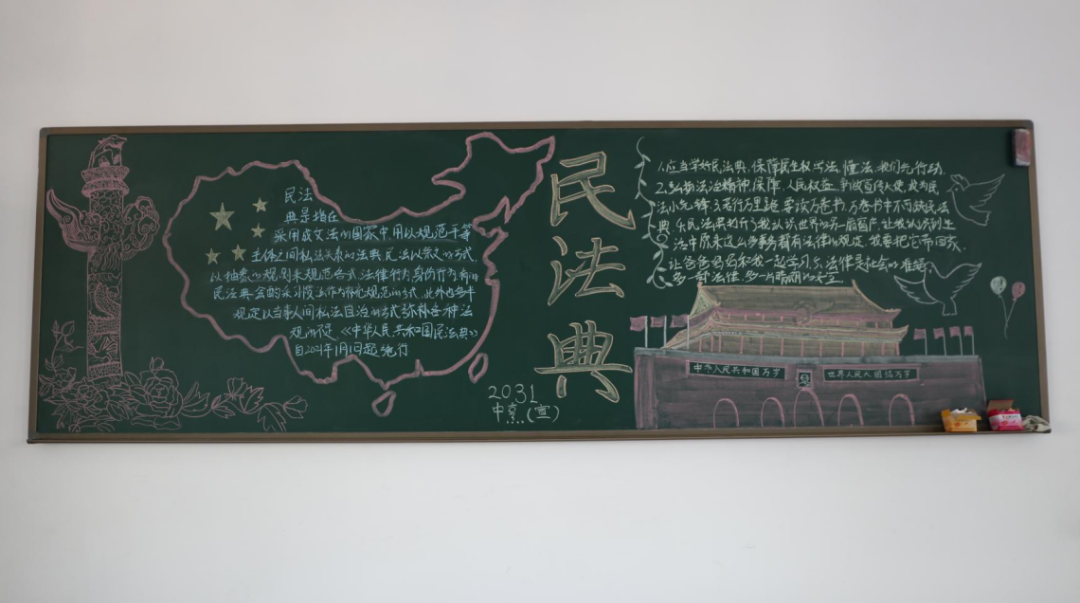 民法
典是指在
采用成文法的国家中,用以规范平等
主体之间私法关系的法典,民法以条文的方式
以抽象的规则来规范各式法律行为,身份行为
民法典会酌采习惯
规定以当事人间私法自治的方式弥补
规 《中华人民共和国民法典》
自2021年1月1日起施行
民法典
2031
中 (宣)
1.应当学好民法典,保障民生权 学法,懂法,我们先行动.
2.弘扬法治精神,保障人民权益,争做宣传大使,我为民
法小先锋 行万里路,要读万卷书,万卷书中不可缺民法
典 民法典的行 我认识世界的另一扇窗户,让我认识到生
活中原来这么多事务都有法律的规定,我要把它带回家.
让爸爸妈妈和我一起学习 法律是社会的准绳
多一部法律,多一片晴朗的天空
中华人民共和国万岁
世界人民大团结万岁